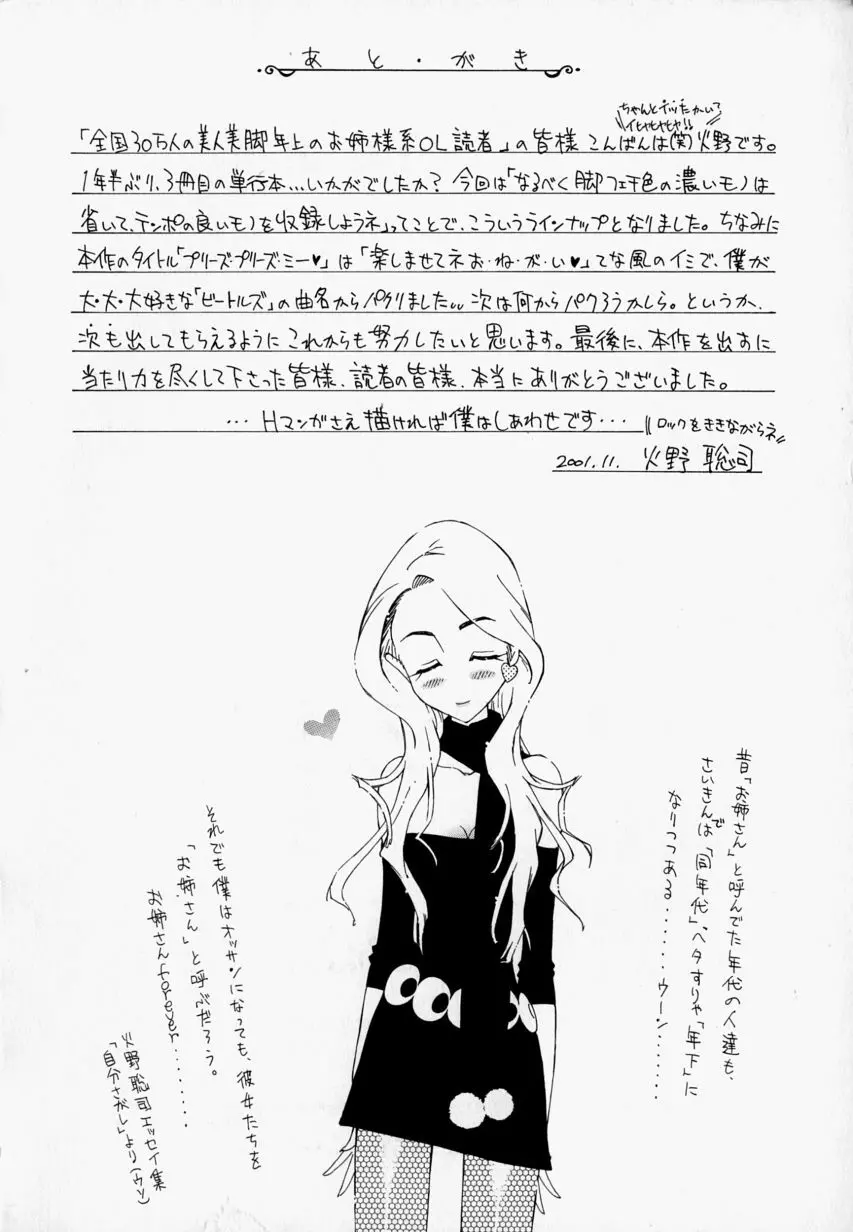 あと・がき
ちゃんとボッたかい?
イヒャヒャヒャ!!
「全国30万人の美人美脚年上のお姉様系OL読者」の皆様 こんばんは(笑)火野です。
1年半ぶり、3冊目の単行本…いかがでしたか? 今回は「なるべく脚フェチ色の濃いモノは
省いて、テンポの良いモノを収録しようネ」ってことで、こういうラインナップとなりました。ちなみに
本作のタイトル「プリーズ・プリーズ・ミー♥」は「楽しませてネお・ね・が・い♥」てな風のイミで、僕が
大・大・大好きな「ビートルズ」の曲名からパクりました。次は何からパクろうかしら。というか、
次も出してもらえるように これからも努力したいと思います。最後に、本作を出すに
当たり力を尽くして下さった皆様、読者の皆様、本当にありがとうございました。
…Hマンガさえ描ければ僕はしあわせです…
〃ロックをききながらネ〃
2001.11. 火野 聡司
昔「お姉さん」と呼んでた年代の人達も、
さいきんでは「同年代」、ヘタすりゃ「年下」に
なりつつある.......ウーン.......
それでも僕はオッサンになっても、彼女たちを
「お姉さん」と呼ぶだろう。
お姉さんforever.........
火野聡司エッセイ集
「自分さがし」より(ウソ)